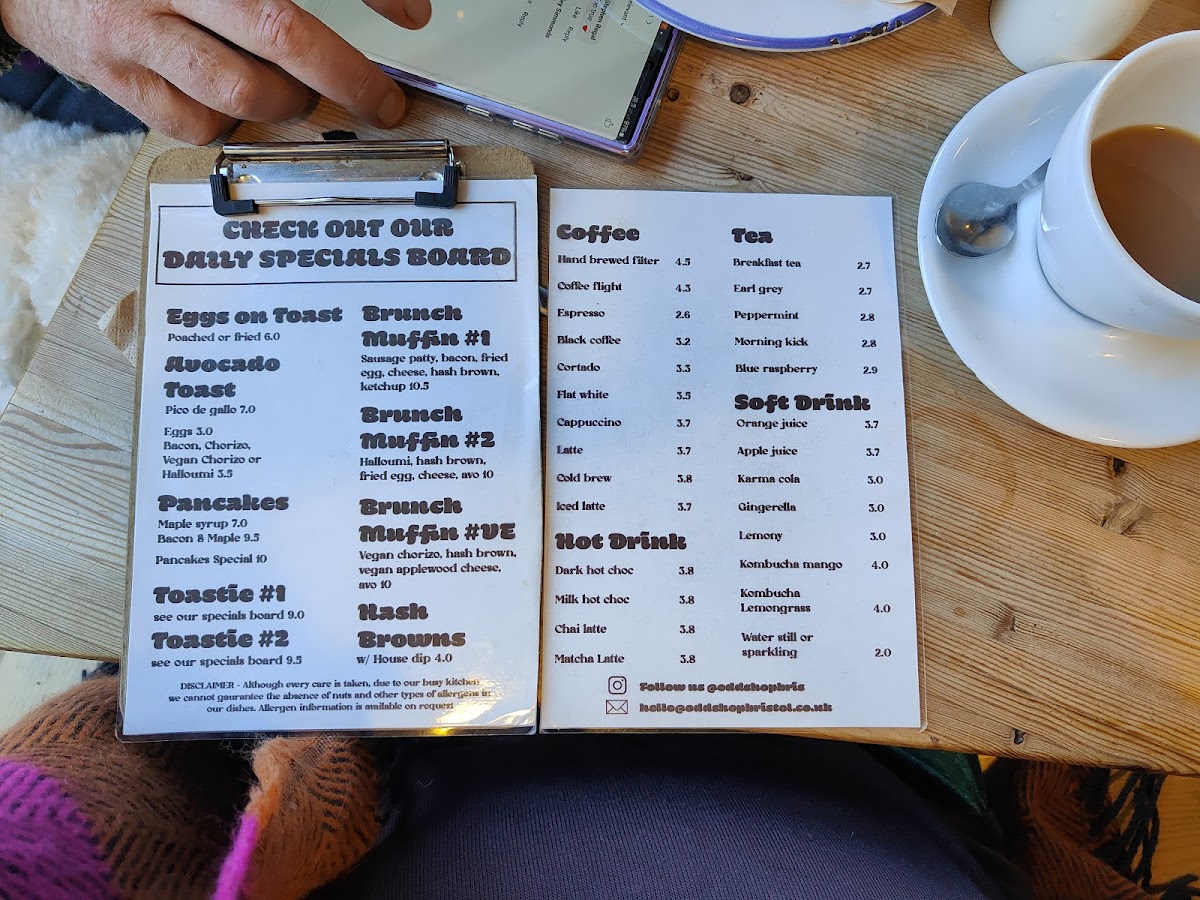 CHECK OUT OUR
DAILY SPECIALS BOARD
Eggs on Toast
Poached or fried 6.0
Avocado
Toast
Pico de gallo 7.0
Eggs 3.0
Bacon, Chorizo,
Vegan Chorizo or
Halloumi 3.5
Pancakes
Maple syrup 7.0
Bacon & Maple 9.5
Pancakes Special 10
Toastie #1
see our specials board 9.0
Toastie #2
see our specials board 9.5
Brunch
Muffin #1
Sausage patty, bacon, fried
egg, cheese, hash brown,
ketchup 10.5
Brunch
Muffin #2
Halloumi, hash brown,
fried egg, cheese, avo 10
Brunch
Muffin #VE
Vegan chorizo, hash brown,
vegan applewood cheese,
avo 10
Hash
Browns
w/ House dip 4.0
DISCLAIMER - Although every care is taken, due to our busy kitchen
we cannot gaurantee the absence of nuts and other types of allergens in
our dishes. Allergen information is available on request
Coffee
Hand brewed filter 4.5
Coffee flight 4.3
Espresso 2.6
Black coffee 3.2
Cortado 3.3
Flat white 3.5
Cappuccino 3.7
Latte 3.7
Cold brew 3.8
Iced latte 3.7
Hot Drink
Dark hot choc 3.8
Milk hot choc 3.8
Chai latte 3.8
Matcha Latte 3.8
Tea
Breakfast tea 2.7
Earl grey 2.7
Peppermint 2.8
Morning kick 2.8
Blue raspberry 2.9
Soft Drink
Orange juice 3.7
Apple juice 3.7
Karma cola 3.0
Gingerella 3.0
Lemony 3.0
Kombucha mango 4.0
Kombucha
Lemongrass 4.0
Water still or
sparkling 2.0
Follow us @oddshopbris
hello@oddshopbristol.co.uk
Like Reply
Reply